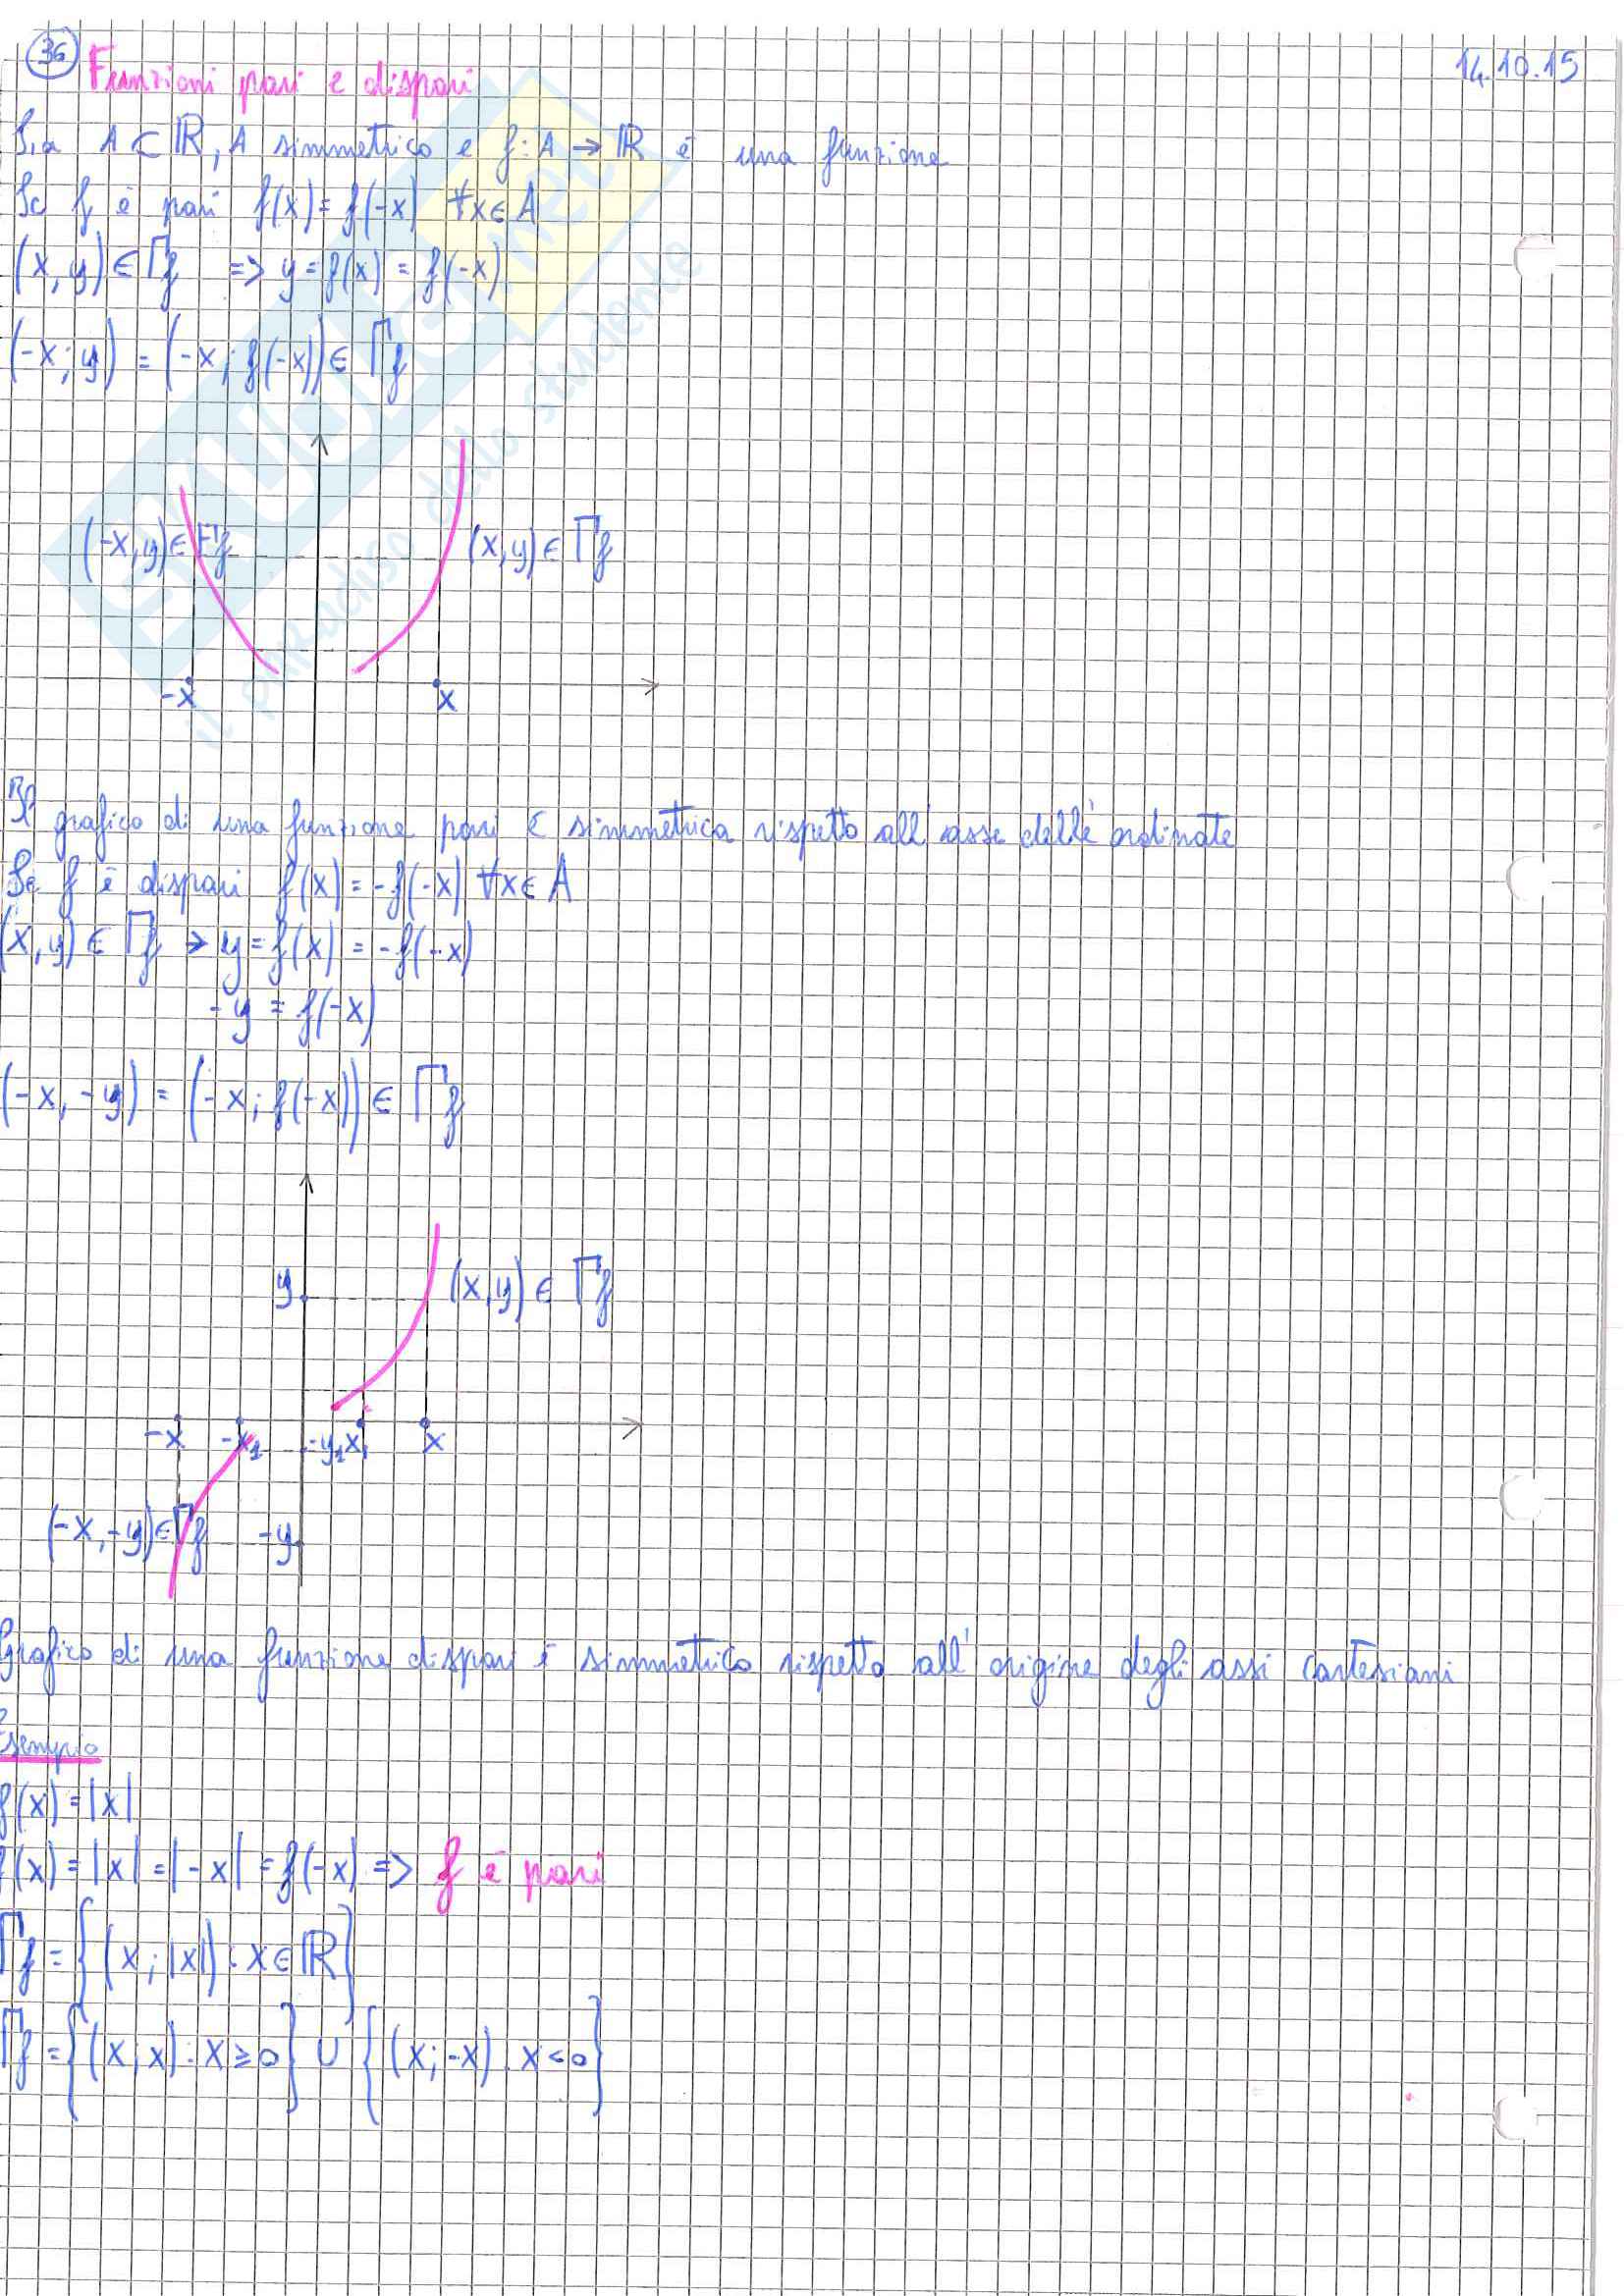 36 Funzioni pari e dispari 14.10.15
Sia A ⊂ ℝ, A simmetrico e f: A → ℝ è una funzione
Se f è pari f(x) = f(-x) ∀x ∈ A
(x, y) ∈ Γf => y = f(x) = f(-x)
(-x; y) = (-x; f(-x)) ∈ Γf
(-x, y) ∈ Γf (x, y) ∈ Γf
-x x
Il grafico di una funzione pari è simmetrica rispetto all'asse delle ordinate
Se f è dispari f(x) = -f(-x) ∀x ∈ A
(x, y) ∈ Γf → y = f(x) = -f(-x)
-y = f(-x)
(-x, -y) = (-x; f(-x)) ∈ Γf
y (x, y) ∈ Γf
-x -x₁ -y₁ x₁ x
(-x, -y) ∈ Γf -y
Grafico di una funzione dispari è simmetrico rispetto all'origine degli assi cartesiani
Esempio
f(x) = |x|
f(x) = |x| = |-x| = f(-x) => f è pari
Γf = {(x; |x|) : x ∈ ℝ}
Γf = {(x; x) : x ≥ 0} ∪ {(x; -x) : x < 0}
il paradiso dello studente